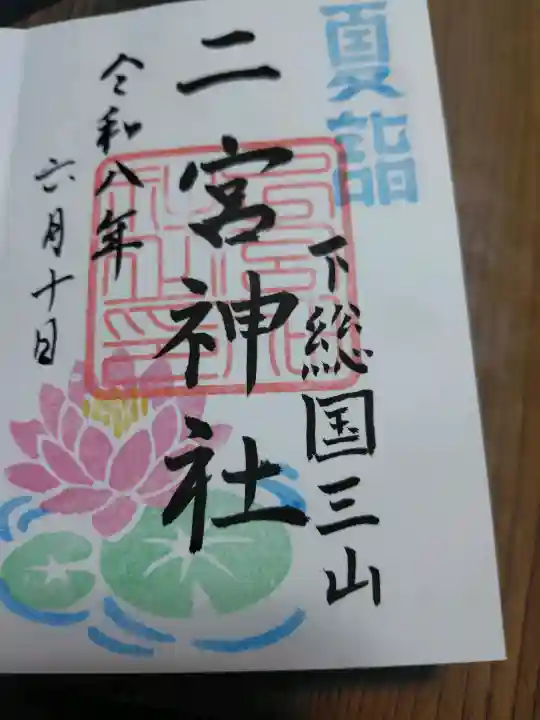 夏詣
下総国三山
二宮神社
令和八年
六月十日